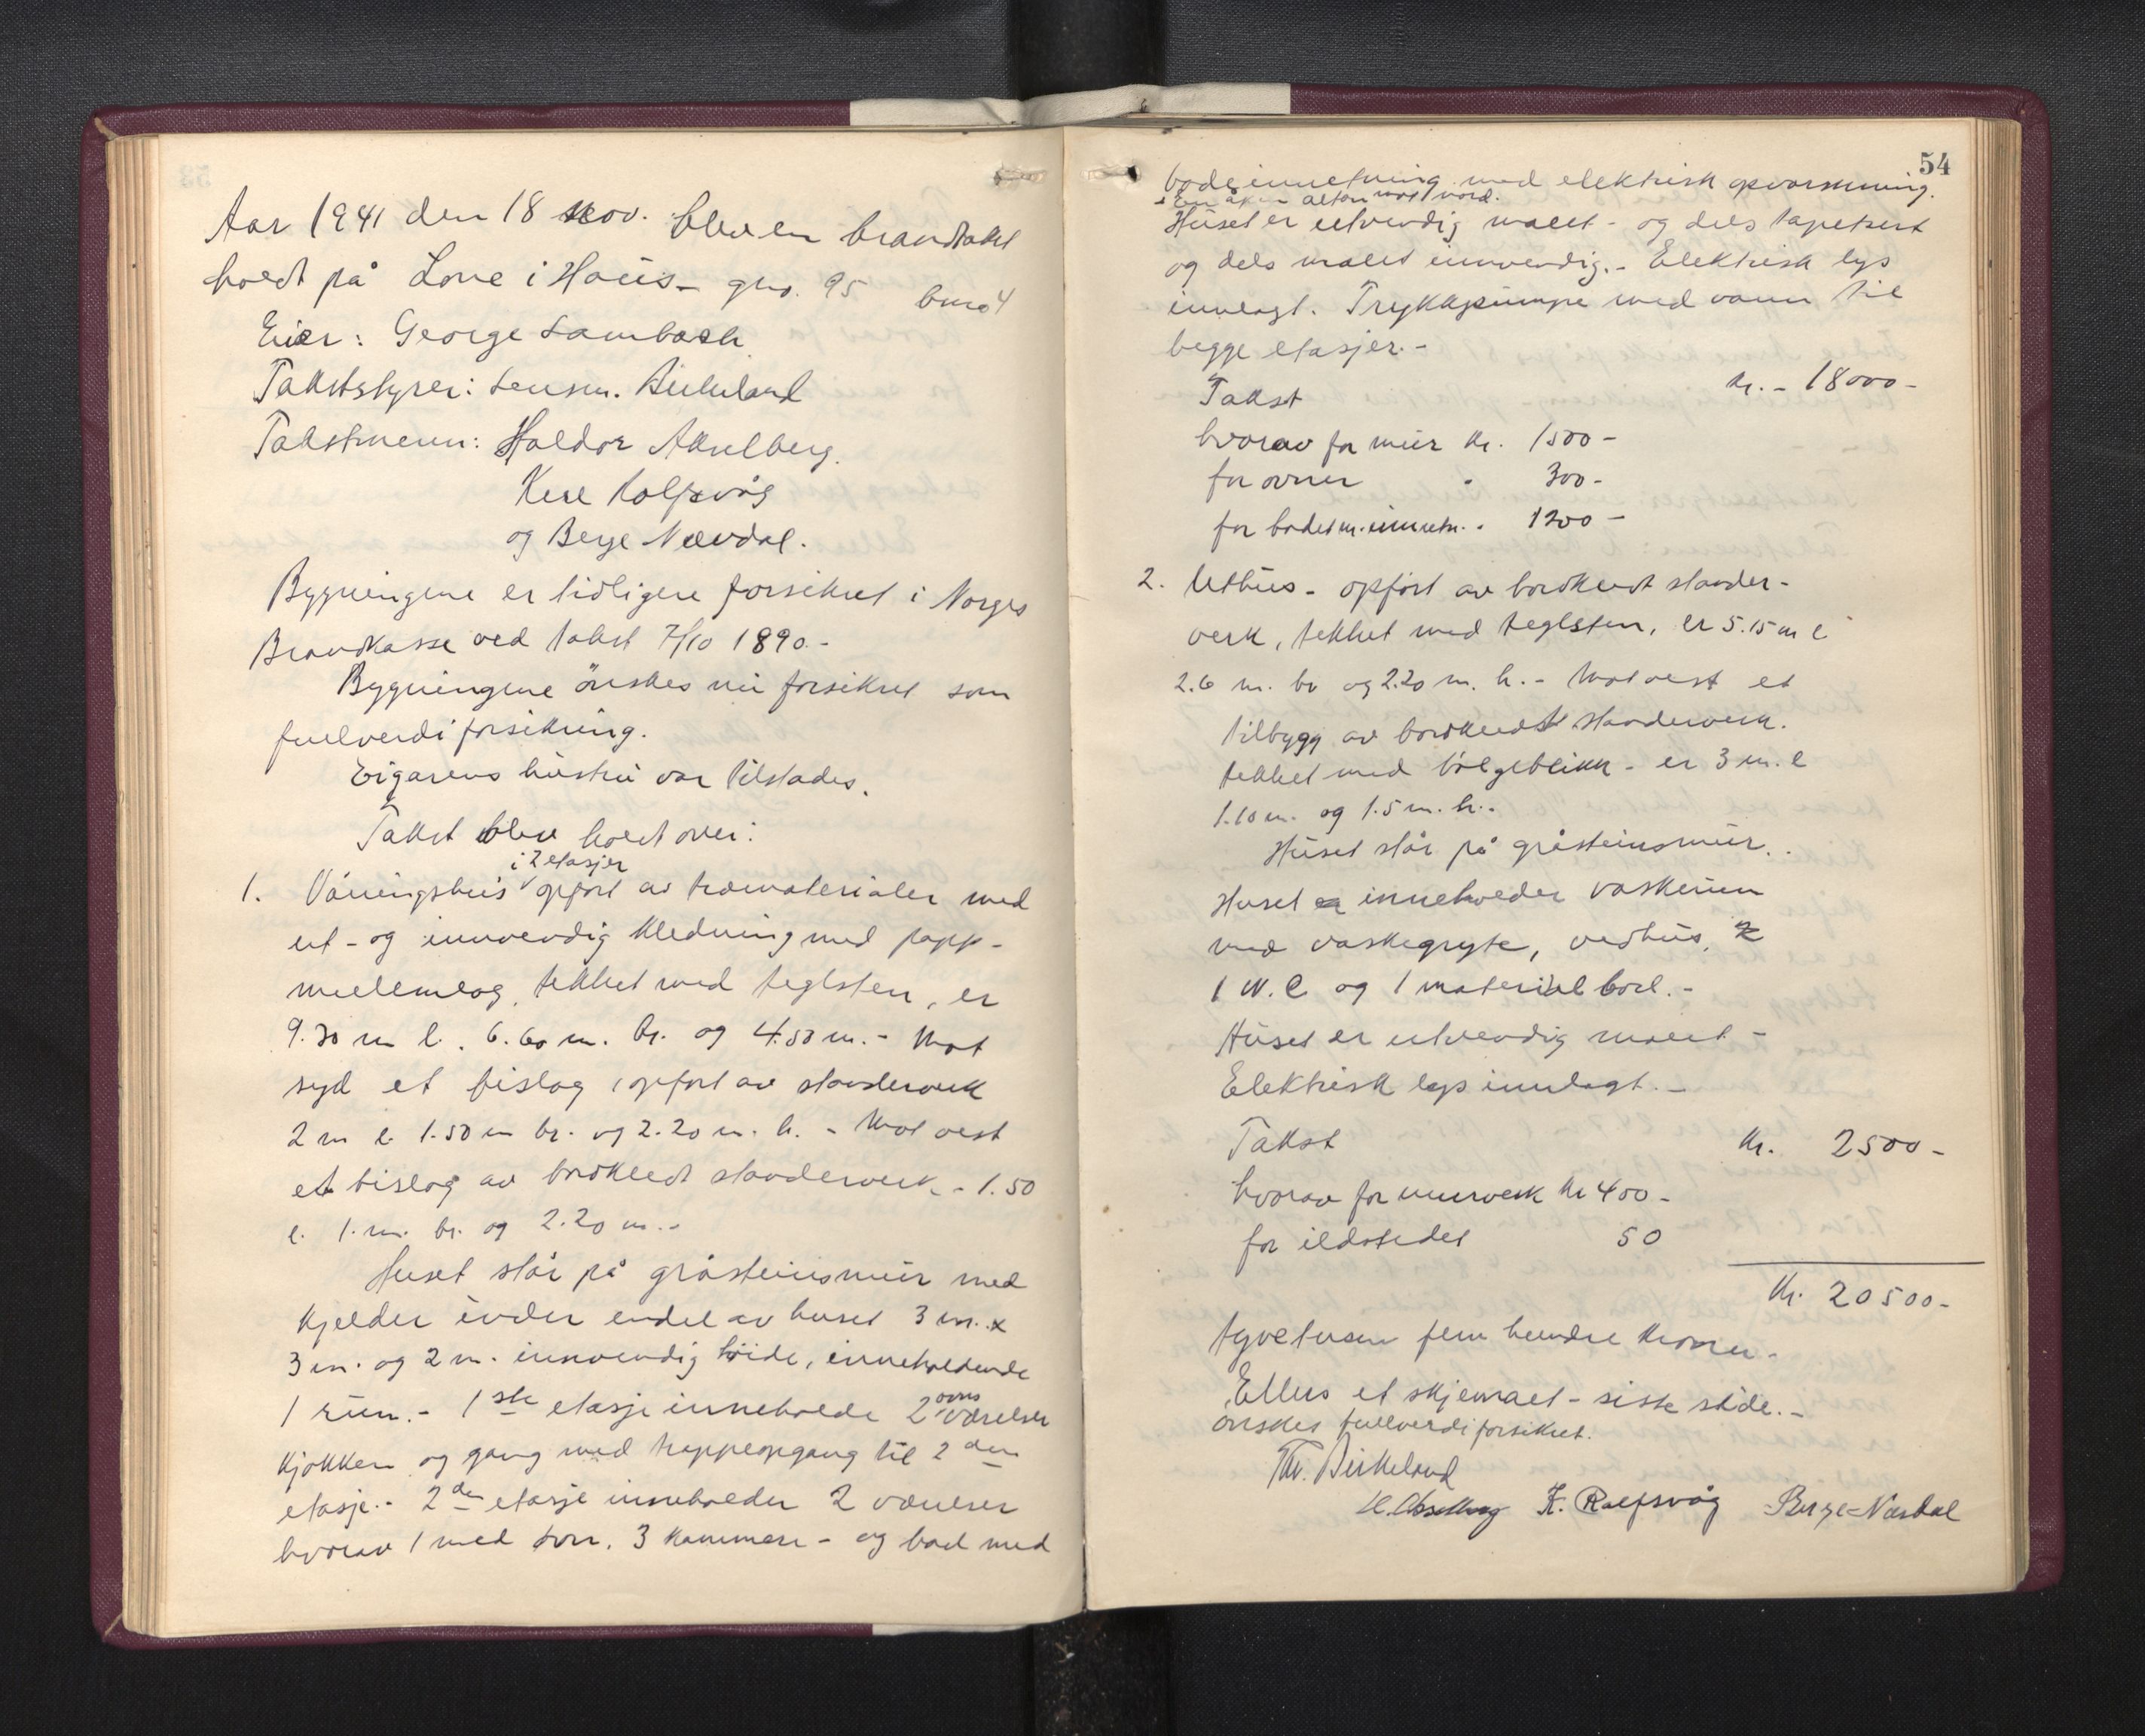 Aar 1941 den 18 nov. blev en brandtakst
holdt på Lone i Haus - gno. 95 bno 4
Eier: George Sambach
Takststyrer: Lensm. Birkeland
Takstmenn: Haldor Akselberg.
Rolfsvåg
og Berge Nævdal.
Bygningene er tidligere forsikret i Norges
Brandkasse ved takst 7/10 1890.-
Bygningene önskes nu forsikret som
fullverdiforsikring.
Eigarens hustru var tilstades.
Takst blev holdt over:
i 2 etasjer
1. Våningshus opfört av træmaterialer med
ut- og innvendig kledning med papp-
mellemlag, tekket med teglsten, er
9.30 m l. 6.60 m. br. og 4.50 m. - Mot
syd et bislag opfört av stavderverk
2 m l. 1.50 m br. og 2.20 m. h. - Mot vest
et bislag av bordkledt stavderverk - 1.50
l. 1. m. br. og 2.20 m.-
Huset står på gråsteinsmur med
kjelder under endel av huset 3 m. x
3 m. og 2 m. innvendig höide, inneholdende
1 rum. - 1ste etasje inneholde 2 ovns
værelser
kjökken og gang med trappeopgang til 2den
etasje.- 2den etasje inneholder 2 værelser
hvorav 1 med ovn, 3 kammere - og bad med
54
badeinnretning med elektrisk opvarmning.
En åpen altan mot nord.
Huset er utvendig malet - og dels tapetsert
og dels malet innvendig. - Elektrisk lys
innlagt. Trykkpumpe med vann til
begge etasjer. -
Takst kr. - 18000 -
hvorav for mur kr. 1500 -
for ovner " 300 -
for badeinnretn. " 1200 -
2. Uthus - opfört av bordkledt stavder-
verk, tekket med teglsten, er 5.15 m l
2.6 m. br og 2.20 m. h. - Mot vest et
tilbygg av bordkledt stavderverk.
tekket med bölgeblikk - er 3 m. l
1.10 m. og 1.5 m. h. -
Huset står på gråsteinsmur.
Huset inneholder vaskerum
med vaskegryte, vedhus,
1 W.C og 1 material bod. -
Huset er utvendig malet -
Elektrisk lys innlagt. -
Takst kr. 2500 -
hvorav for murverk kr 400 -
for ildstedet 50
Kr. 20500 -
tyvetusen fem hundre kroner -
Ellers et skjemaet - siste side. -
önskes fullverdiforsikret.
Th. Birkeland
H. Akselberg K. Rolfsvåg Berge Nævdal